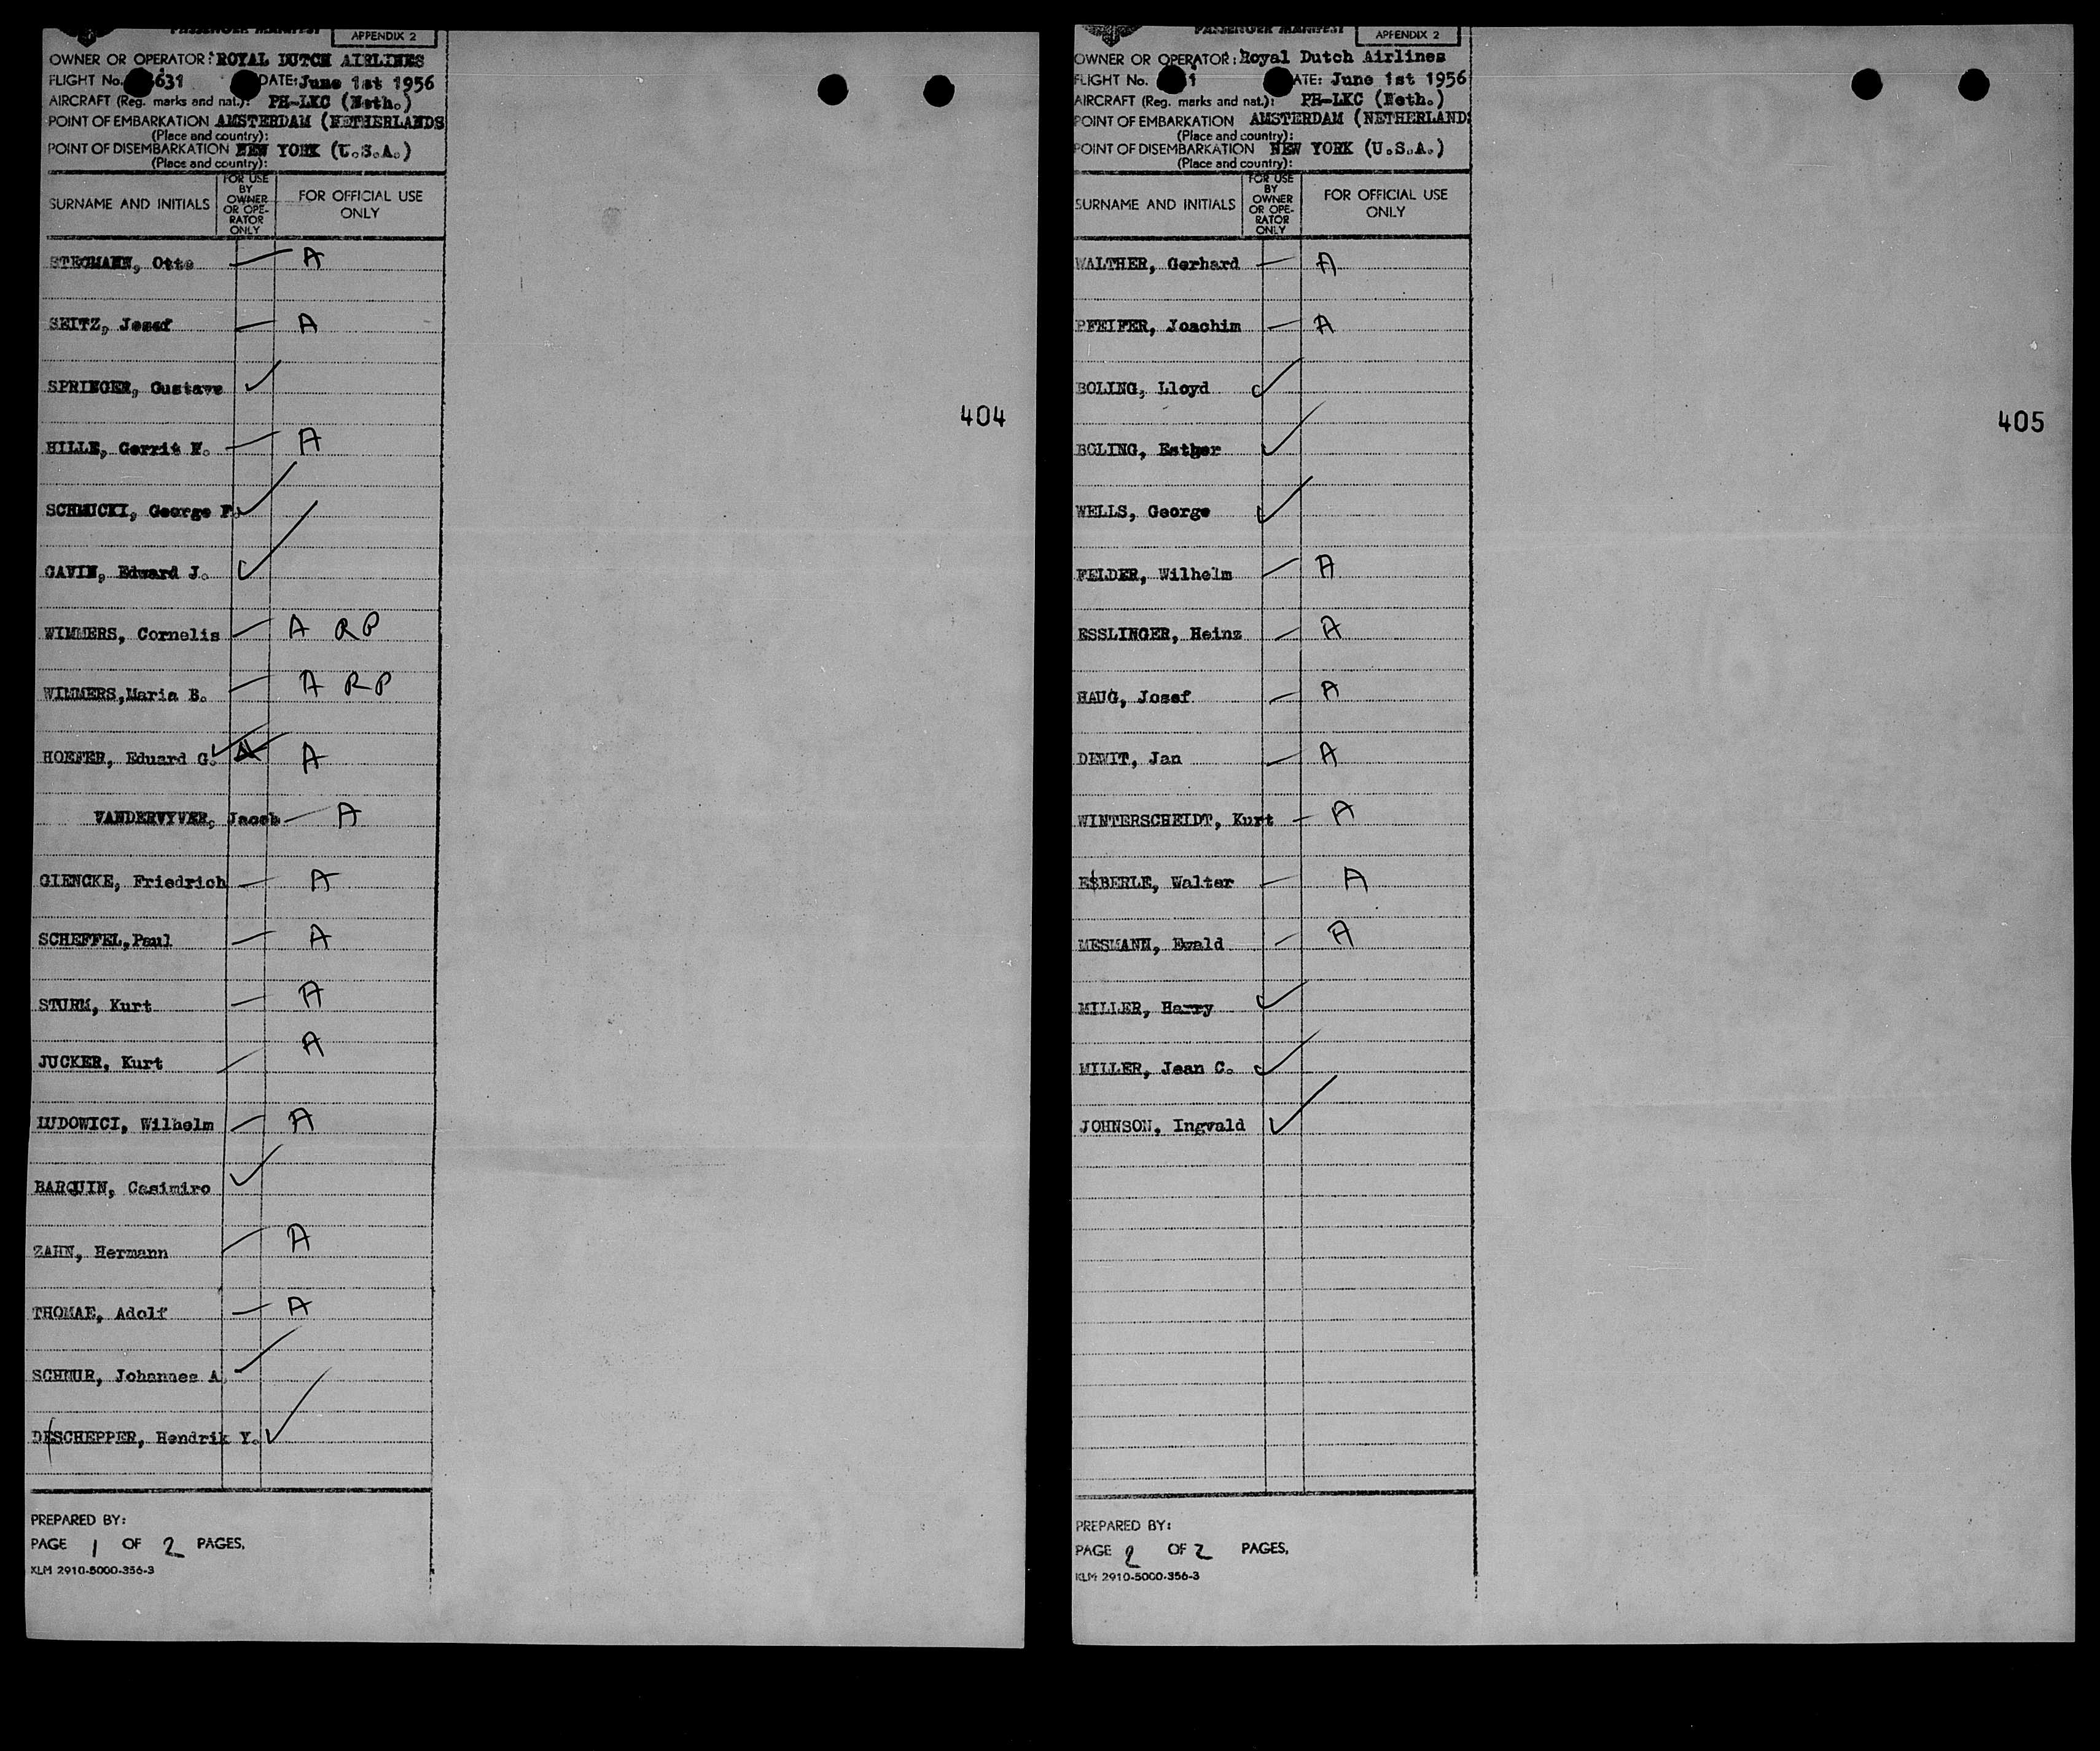 PASSENGER MANIFEST
APPENDIX 2
OWNER OR OPERATOR: ROYAL DUTCH AIRLINES
FLIGHT No. 631 DATE: June 1st 1956
AIRCRAFT (Reg. marks and nat.): PH-LKC (Neth.)
POINT OF EMBARKATION AMSTERDAM (NETHERLANDS
(Place and country):
POINT OF DISEMBARKATION NEW YORK (U.S.A.)
(Place and country):
SURNAME AND INITIALS
FOR USE BY OWNER OR OPE-RATOR ONLY
FOR OFFICIAL USE ONLY
STEGMANN, Otto — A
SEITZ, Josef — A
SPRINGER, Gustave ✓
404
HILLE, Gerrit — A
SCHMICKI, George F. ✓
GAVIN, Edward J. ✓
WIMMERS, Cornelis — A RP
WIMMERS,Maria B. — A RP
HOEFER, Eduard G. ✓ A
VANDERVYVER, Jacob — A
GIENCKE, Friedrich — A
SCHEFFEL,Paul — A
STURM, Kurt — A
JUCKER, Kurt — A
LUDOWICI, Wilhelm — A
BARQUIN, Casimiro ✓
ZAHN, Hermann — A
THOMAE, Adolf — A
SCHNUR, Johannes A. ✓
DESCHEPPER, Hendrik Y. ✓
PREPARED BY:
PAGE 1 OF 2 PAGES.
KLM 2910-5000-356-3
PASSENGER MANIFEST
APPENDIX 2
OWNER OR OPERATOR: Royal Dutch Airlines
FLIGHT No. 1 DATE: June 1st 1956
AIRCRAFT (Reg. marks and nat.): PH-LKC (Neth.)
POINT OF EMBARKATION AMSTERDAM (NETHERLANDS
(Place and country):
POINT OF DISEMBARKATION NEW YORK (U.S.A.)
(Place and country):
SURNAME AND INITIALS
FOR USE BY OWNER OR OPE-RATOR ONLY
FOR OFFICIAL USE ONLY
WALTHER, Gerhard — A
PFEIFER, Joachim — A
BOLING, Lloyd ✓
405
BOLING, Esther ✓
WELLS, George ✓
FELDER, Wilhelm — A
ESSLINGER, Heinz — A
HAUG, Josef — A
DEWIT, Jan — A
WINTERSCHEIDT, Kurt — A
ESBERLE, Walter — A
MESMANN, Ewald — A
MILLER, Harry ✓
MILLER, Jean C. ✓
JOHNSON, Ingvald ✓
PREPARED BY:
PAGE 2 OF 2 PAGES.
KLM 2910-5000-356-3